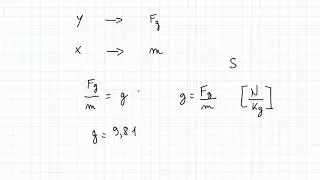 Y → Fg
X → m
S
Fg/m = g
g = Fg/m [N/Kg]
g = 9,81